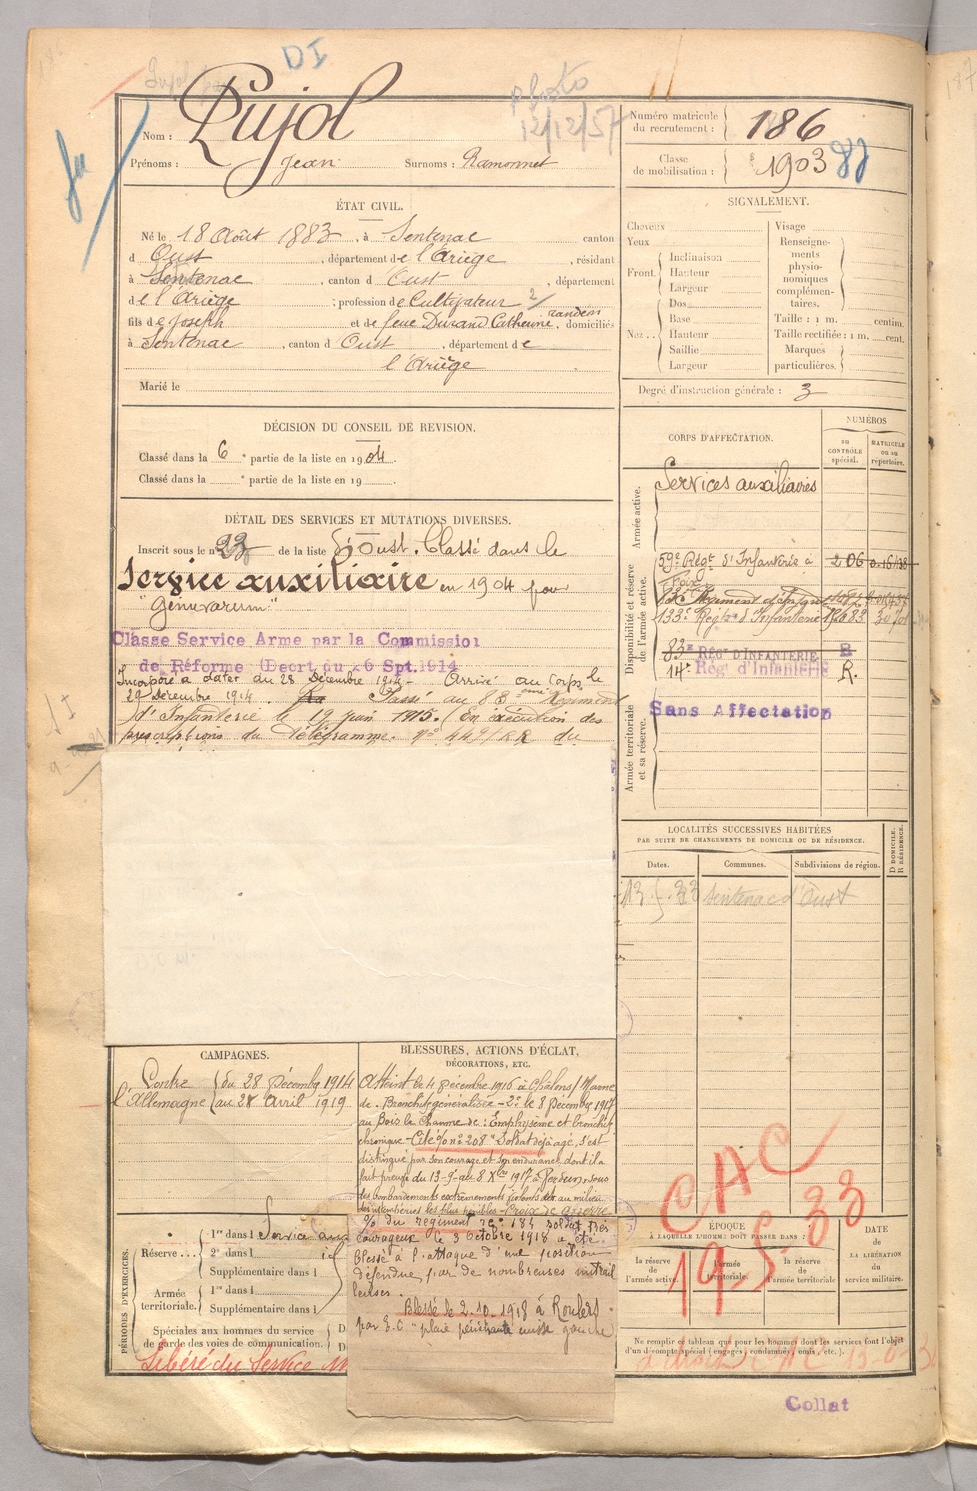 DI
Photo
12/12/57
Nom : Pujol
Prénoms : Jean Surnoms : Ramonnet
Numéro matricule du recrutement : 186
Classe de mobilisation : 1903
ÉTAT CIVIL.
Né le 18 Août 1883, à Sentenac canton
d Oust, département de l'Ariège, résidant
à Sentenac, canton d Oust, département
de l'Ariège ; profession de Cultivateur 2/
fils de Joseph et de feue Durand Catherine, domiciliés
à Sentenac, canton d Oust, département de
l'Ariège
Marié le
SIGNALEMENT.
Cheveux
Yeux
Front. Inclinaison
Hauteur
Largeur
Nez. Dos
Base
Hauteur
Saillie
Largeur
Visage
Renseigne-
ments
physio-
nomiques
complémen-
taires.
Taille : 1 m. centim.
Taille rectifiée : 1 m. cent.
Marques
particulières.
Degré d'instruction générale : 3
DÉCISION DU CONSEIL DE REVISION.
Classé dans la 6e partie de la liste en 1904.
Classé dans la e partie de la liste en 19
DÉTAIL DES SERVICES ET MUTATIONS DIVERSES.
Inscrit sous le n° 23 de la liste d'Oust. Classé dans le
Service auxiliaire en 1904 pour
"Genuvarum"
Classe Service Arme par la Commission
de Réforme (Decrt du 26 Spt. 1914
Incorporé à dater du 28 Décembre 1914. Arrivé au corps le
29 Décembre 1914. Passé au 83eme Régiment
d'Infanterie le 19 juin 1915. En exécution des
prescriptions du Télégramme. N° 449/RR du
CORPS D'AFFECTATION.
NUMÉROS
au
CONTRÔLE
spécial.
MATRICULE
ou au
répertoire.
Armée active.
Services auxiliaires
Disponibilité et réserve
de l'armée active.
59e Régt d'Infanterie à 206
Foix
133e Régt d'Infanterie 17683
83e RÉGt D'INFANTERIE
14e Régt d'Infanterie R.
Armée territoriale
et sa réserve.
Sans Affectation
LOCALITÉS SUCCESSIVES HABITÉES
PAR SUITE DE CHANGEMENTS DE DOMICILE OU DE RÉSIDENCE.
Dates.
Communes.
Subdivisions de région.
D DOMICILE.
R RÉSIDENCE.
Sentenac d'Oust
CAMPAGNES.
Contre
l'Allemagne
du 28 Décembre 1914
au 28 Avril 1919
BLESSURES, ACTIONS D'ÉCLAT,
DÉCORATIONS, ETC.
Atteint le 4 Décembre 1916 à Châlons/Marne
de : Bronchite généralisée – 2° le 8 Décembre 1917
au Bois le Chaume de : Emphysème et bronchite
chronique – Cité n° 208 "Soldat déjà âgé, s'est
distingué par son courage et son endurance, dont il a
fait preuve du au 8 Xbre 1917 à Verdun, sous
des bombardements extrêmements violents et au milieu
des intempéries les plus pénibles – Croix de guerre
du régiment n° 184 soldat très
courageux le 3 Octobre 1918 a été
Blessé à l'attaque d'une position
défendue par de nombreuses mitrail
leuses.
Blessé le 2.10.1918 à Roulers
par E.O "plaie pénétrante cuisse gauche
PÉRIODES D'EXERCICES.
Réserve.
1re dans l Service aux
2e dans l
Supplémentaire dans l
Armée
territoriale.
1re dans l
Supplémentaire dans l
Spéciales aux hommes du service
de garde des voies de communication.
D
D
Libéré du Service
CAC
19-5 33
ÉPOQUE
À LAQUELLE L'HOMME DOIT PASSER DANS :
la réserve de
l'armée active.
l'armée
territoriale.
la réserve de
l'armée territoriale
DATE
de
LA LIBÉRATION
du
service militaire.
Ne remplir ce tableau que pour les hommes dont les services font l'objet
d'un décompte spécial (engagés, condamnés, omis, etc.).
Collat
187